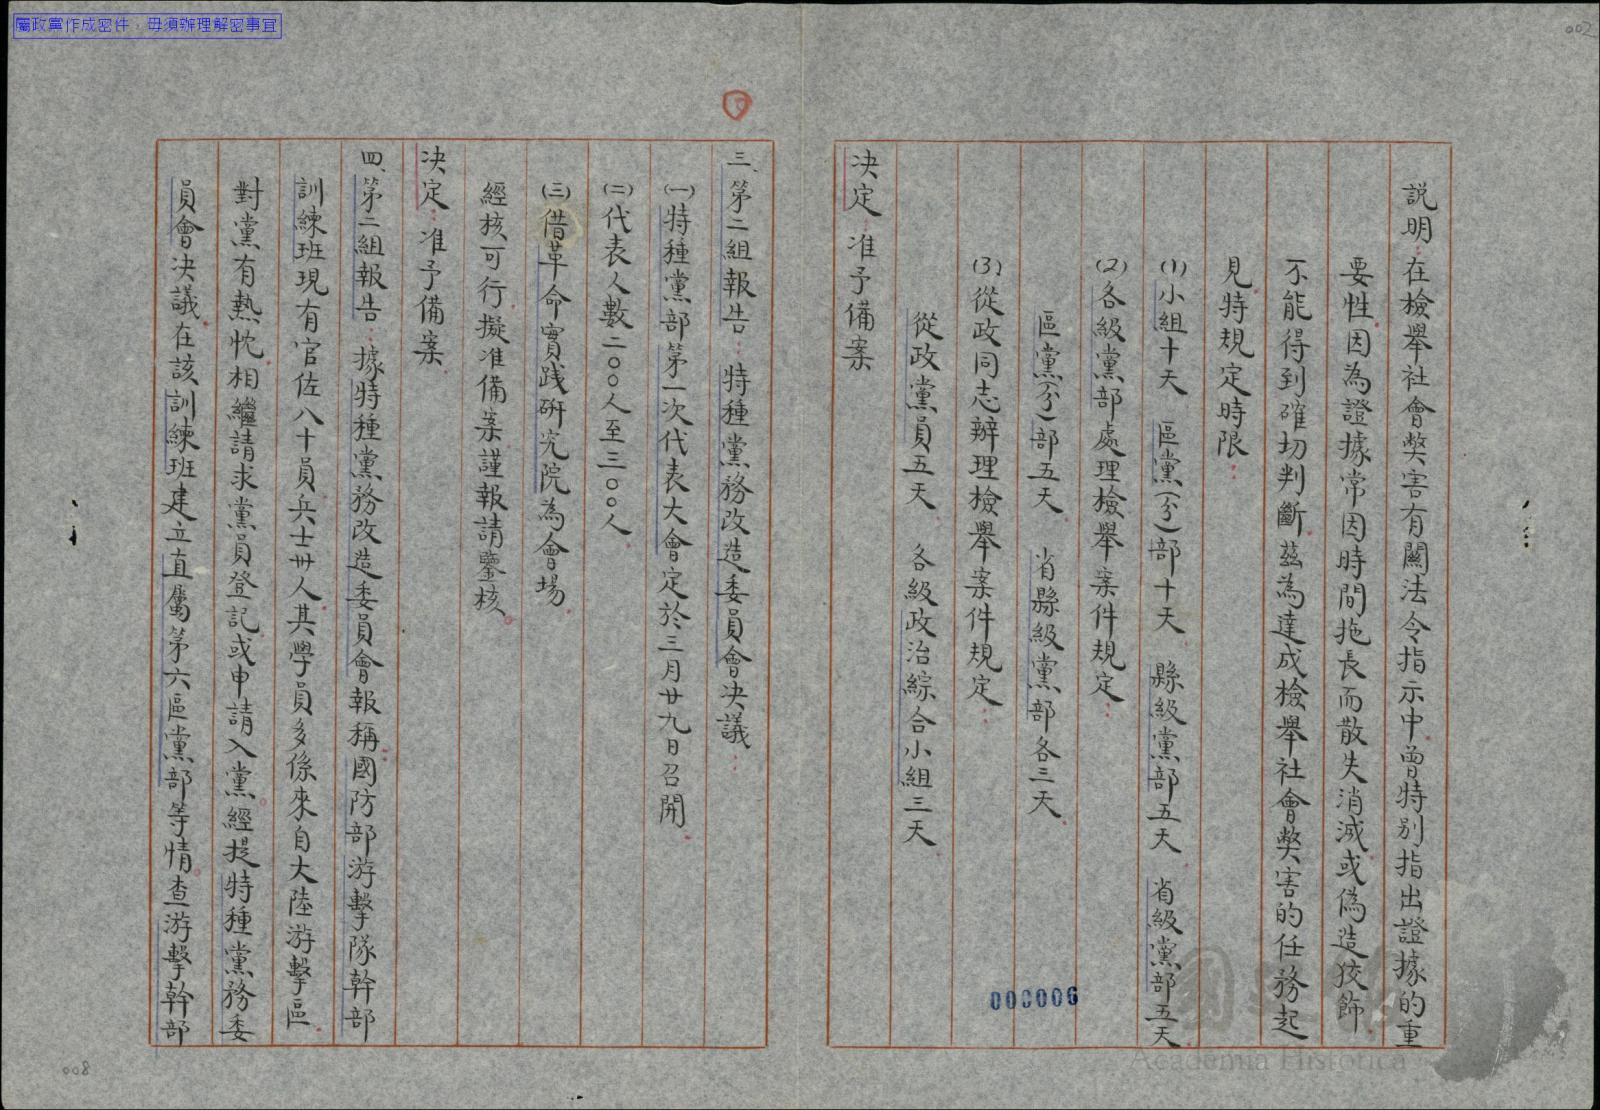 屬政黨作成密件，毋須辦理解密事宜
002
說明：在檢舉社會弊害有關法令指示中曾特別指出證據的重
要性因為證據常因時間拖長而散失消滅或偽造狡飾
不能得到確切判斷茲為達成檢舉社會弊害的任務起
見特規定時限：
(1)小組十天　區黨(分)部十天　縣級黨部五天　省級黨部五天
(2)各級黨部處理檢舉案件規定：
區黨(分)部五天　省縣級黨部各三天
(3)從政同志辦理檢舉案件規定：
從政黨員五天　各級政治綜合小組三天
決定：准予備案
000006
三、第二組報告：特種黨務改造委員會決議：
(一)特種黨部第一次代表大會定於三月廿九日召開
(二)代表人數二〇〇人至三〇〇人
(三)借革命實踐研究院為會場
經核可行擬准備案謹報請鑒核
決定：准予備案
四、第二組報告：據特種黨務改造委員會報稱國防部游擊隊幹部
訓練班現有官佐八十員兵士卅人其學員多係來自大陸游擊區
對黨有熱忱相繼請求黨員登記或申請入黨經提特種黨務委
員會決議在該訓練班建立直屬第六區黨部等情查游擊幹部
008
Academia Historica